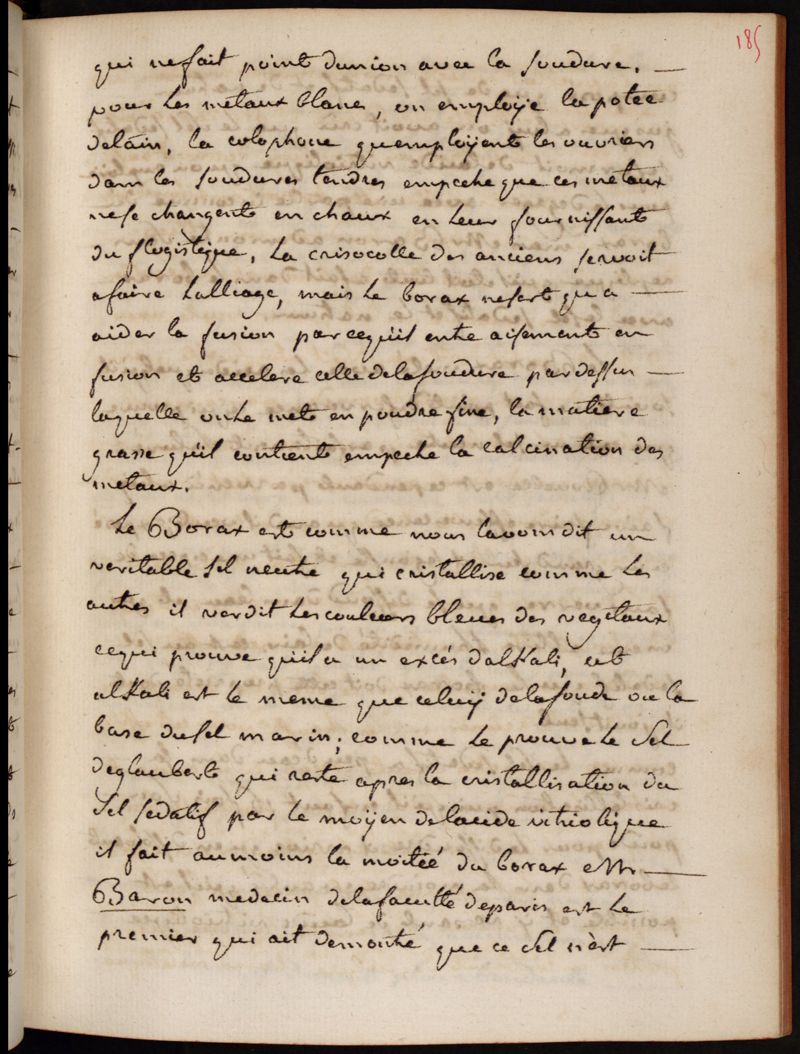 185
qui nefait point dunion avec la soudure. —
pour les metaux blancs, on employe la potée
delain, la colophone quemployent les ouvriers
dans les soudures tendres empeche que ces metaux
nese changent en chaux en leur fournissant
du flogistique, la crisocolle des anciens servoit
afaire lalliage, mais le borax nesert qua —
aider la fusion parcequil entre aisement en
fusion et accelere celle delasoudure pardessus —
laquelle onle met en poudre fine, la matiere
grasse quil contient empeche la calcination des
metaux.
Le Borax est comme nous lavons dit un
veritable sel neutre qui cristallise comme les
autres il verdit les couleurs bleues des vegetaux
cequi prouve quil a un excés dalkali, cet
alkali est le meme que celuy delasoude ou la
base du sel marin; comme le prouve le sel
deglaubert qui reste apres la cristallisation du
sel sedatif par le moyen delacide vitriolique
il fait aumoins la moitié du borax et Mr —
Baron medecin delafaculté deparis est le
premier qui ait demontré que ce sel n'est —